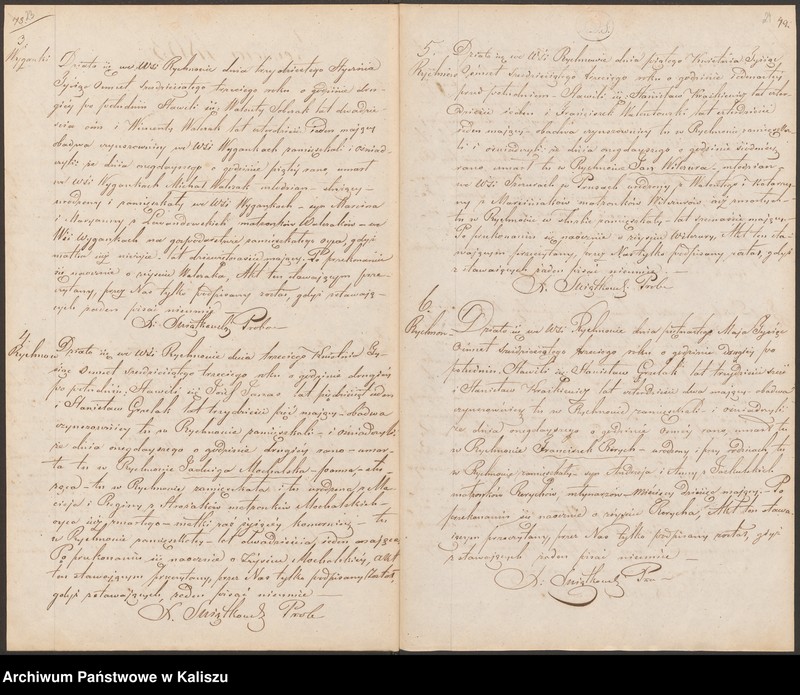 3.
Wyganki
Działo się we Wsi Rychnowie dnia trzydziestego Stycznia
Tysiąc Ośmset Sześćdziesiątego trzeciego roku o godzinie dru-
giej po południu Stawili się, Walenty lat dwadzie-
ścia ośm i Wincenty Walczak lat czterdzieści siedm mający
obadwa wyrobnicy we Wsi Wygankach zamieszkali i oświad-
czyli: że dnia onegdayszego o godzinie piątej rano, umarł
we Wsi Wygankach Michał Walczak młodzian – służący –
urodzony i zamieszkały we Wsi Wygankach – syn Marcina
i Maryanny z Lewandowskich małżonków Walczaków – we
Wsi Wygankach na gospodarstwie zamieszkałego ojca, gdyż
matka już nieżyje – lat dziewiętnaście mający. Po przekonaniu
się naocznie o zejściu Walczaka, Akt ten stawającym prze-
czytany, przez Nas tylko podpisany został, gdyż stawają-
cych żaden pisać nieumie –
X. Świątkowski Prob
4.
Rychnów
Działo się we Wsi Rychnowie dnia trzeciego Kwietnia Ty-
siąc Ośmset Sześćdziesiątego trzeciego roku o godzinie drugiej
po południu. Stawili się Józef lat pięćdziesiąt jeden
i Stanisław Grzelak lat trzydzieści pięć mający – obadwa
wyrobnicy tu w Rychnowie zamieszkali – i oświadczyli:
że dnia onegdayszego o godzinie drugiej rano – umar-
ła tu w Rychnowie Jadwiga Mochalska – panna – słu-
żąca – tu w Rychnowie zamieszkała i tu urodzona, z Ma-
cieja i Reginy z małżonków Mochalskich –
ojca już zmarłego – matki zaś żyjącej Komornicy – tu
w Rychnowie zamieszkałej – lat dwadzieścia siedm mająca.
Po przekonaniu się naocznie o Zejściu Mochalskiej, Akt
ten stawającym przeczytany, przez Nas tylko podpisany został
gdyż stawających, żaden pisać nieumie –
X. Świątkowski Prob
5.
Rychnów
Działo się we Wsi Rychnowie dnia piątego Kwietnia Tysiąc
Ośmset Sześćdziesiątego trzeciego roku o godzinie jedenastej
przed południem. Stawili się: Stanisław Kraikiewicz lat czter-
dzieści jeden i Franciszek lat czterdzieści
siedm mający – obadwa wyrobnicy tu w Rychnowie zamieszka-
li i oświadczyli: że dnia onegdayszego o godzinie siódmej
rano, umarł tu w Rychnowie Jan – młodzian –
we Wsi urodzony z i Katarzy-
ny z małżonków już zmarłych –
tu w Rychnowie zamieszkały – lat mający –
Po przekonaniu się naocznie o zejściu, Akt ten sta-
wającym przeczytany, przez Nas tylko podpisany, został, gdyż
z stawających żaden pisać nieumie –
X. Świątkowski Prob
6.
Rychnów
Działo się we Wsi Rychnowie dnia piętnastego Maja Tysiąc
Ośmset Sześćdziesiątego trzeciego roku o godzinie drugiej po
południu. Stawili się Stanisław Grzelak lat trzydzieści sześć
i Stanisław Kraikiewicz lat czterdzieści dwa mający – obadwa
wyrobnicy tu w Rychnowie zamieszkali – i oświadczyli:
że dnia onegdayszego o godzinie ósmej rano, umarł tu
w Rychnowie Franciszek Berych – urodzony i przy rodzicach, tu
w Rychnowie zamieszkały – syn Andrzeja i Anny z
małżonków Berychów, młynarzów – mający – Po
przekonaniu się naocznie o zejściu Berycha, Akt ten stawa-
jącym przeczytany, przez Nas tylko podpisany został, gdyż
z stawających żaden pisać nieumie –
X. Świątkowski Pro
Archiwum Państwowe w Kaliszu